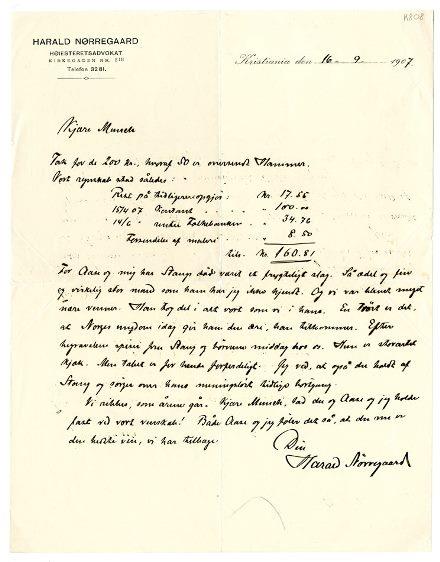 K808
HARALD NØRREGAARD
HØIESTERETSADVOKAT
KIRKEGADEN NR.
Telefon 3281.
Kristiania den 16 - 9 - 1907
Kjære Munch
Tak for de 200 Kr., hvoraf 50 er oversendt Hammer.
Vort regnskab stod således:
Rest på tidligere opgjør: Kr. 17.55
15/4 07 Kontant " 100.00
14/6 " Folkebanken " 34.76
Forsendelse af maleri " 8.50
tils. Kr. 160.81
For Aase og mig har Stangs død været et frygteligt slag. Så ædel og fin
og virkelig stor mand som ham har jeg ikke kjendt. Og vi var blevet meget
nære venner. Han tog del i alt vort som vi i hans. En trøst er det,
at Norges ungdom idag gir ham den ære, han tilkommer. Efter
begravelsen spiser fru Stang og børnene middag hos os. Hun er storartet
kjæk. Men tabet er for hende forfærdeligt. Jeg ved, at også du holdt af
Stang og sørger over hans meningsløst tidlige bortgang.
Vi ældes, som årene går. Kjære Munch, lad du og Aase og jeg holde
fast ved vort venskab! Både Aase og jeg føler det så, at du er
den bedste ven, vi har tilbage.
Din
Harald Nørregaard